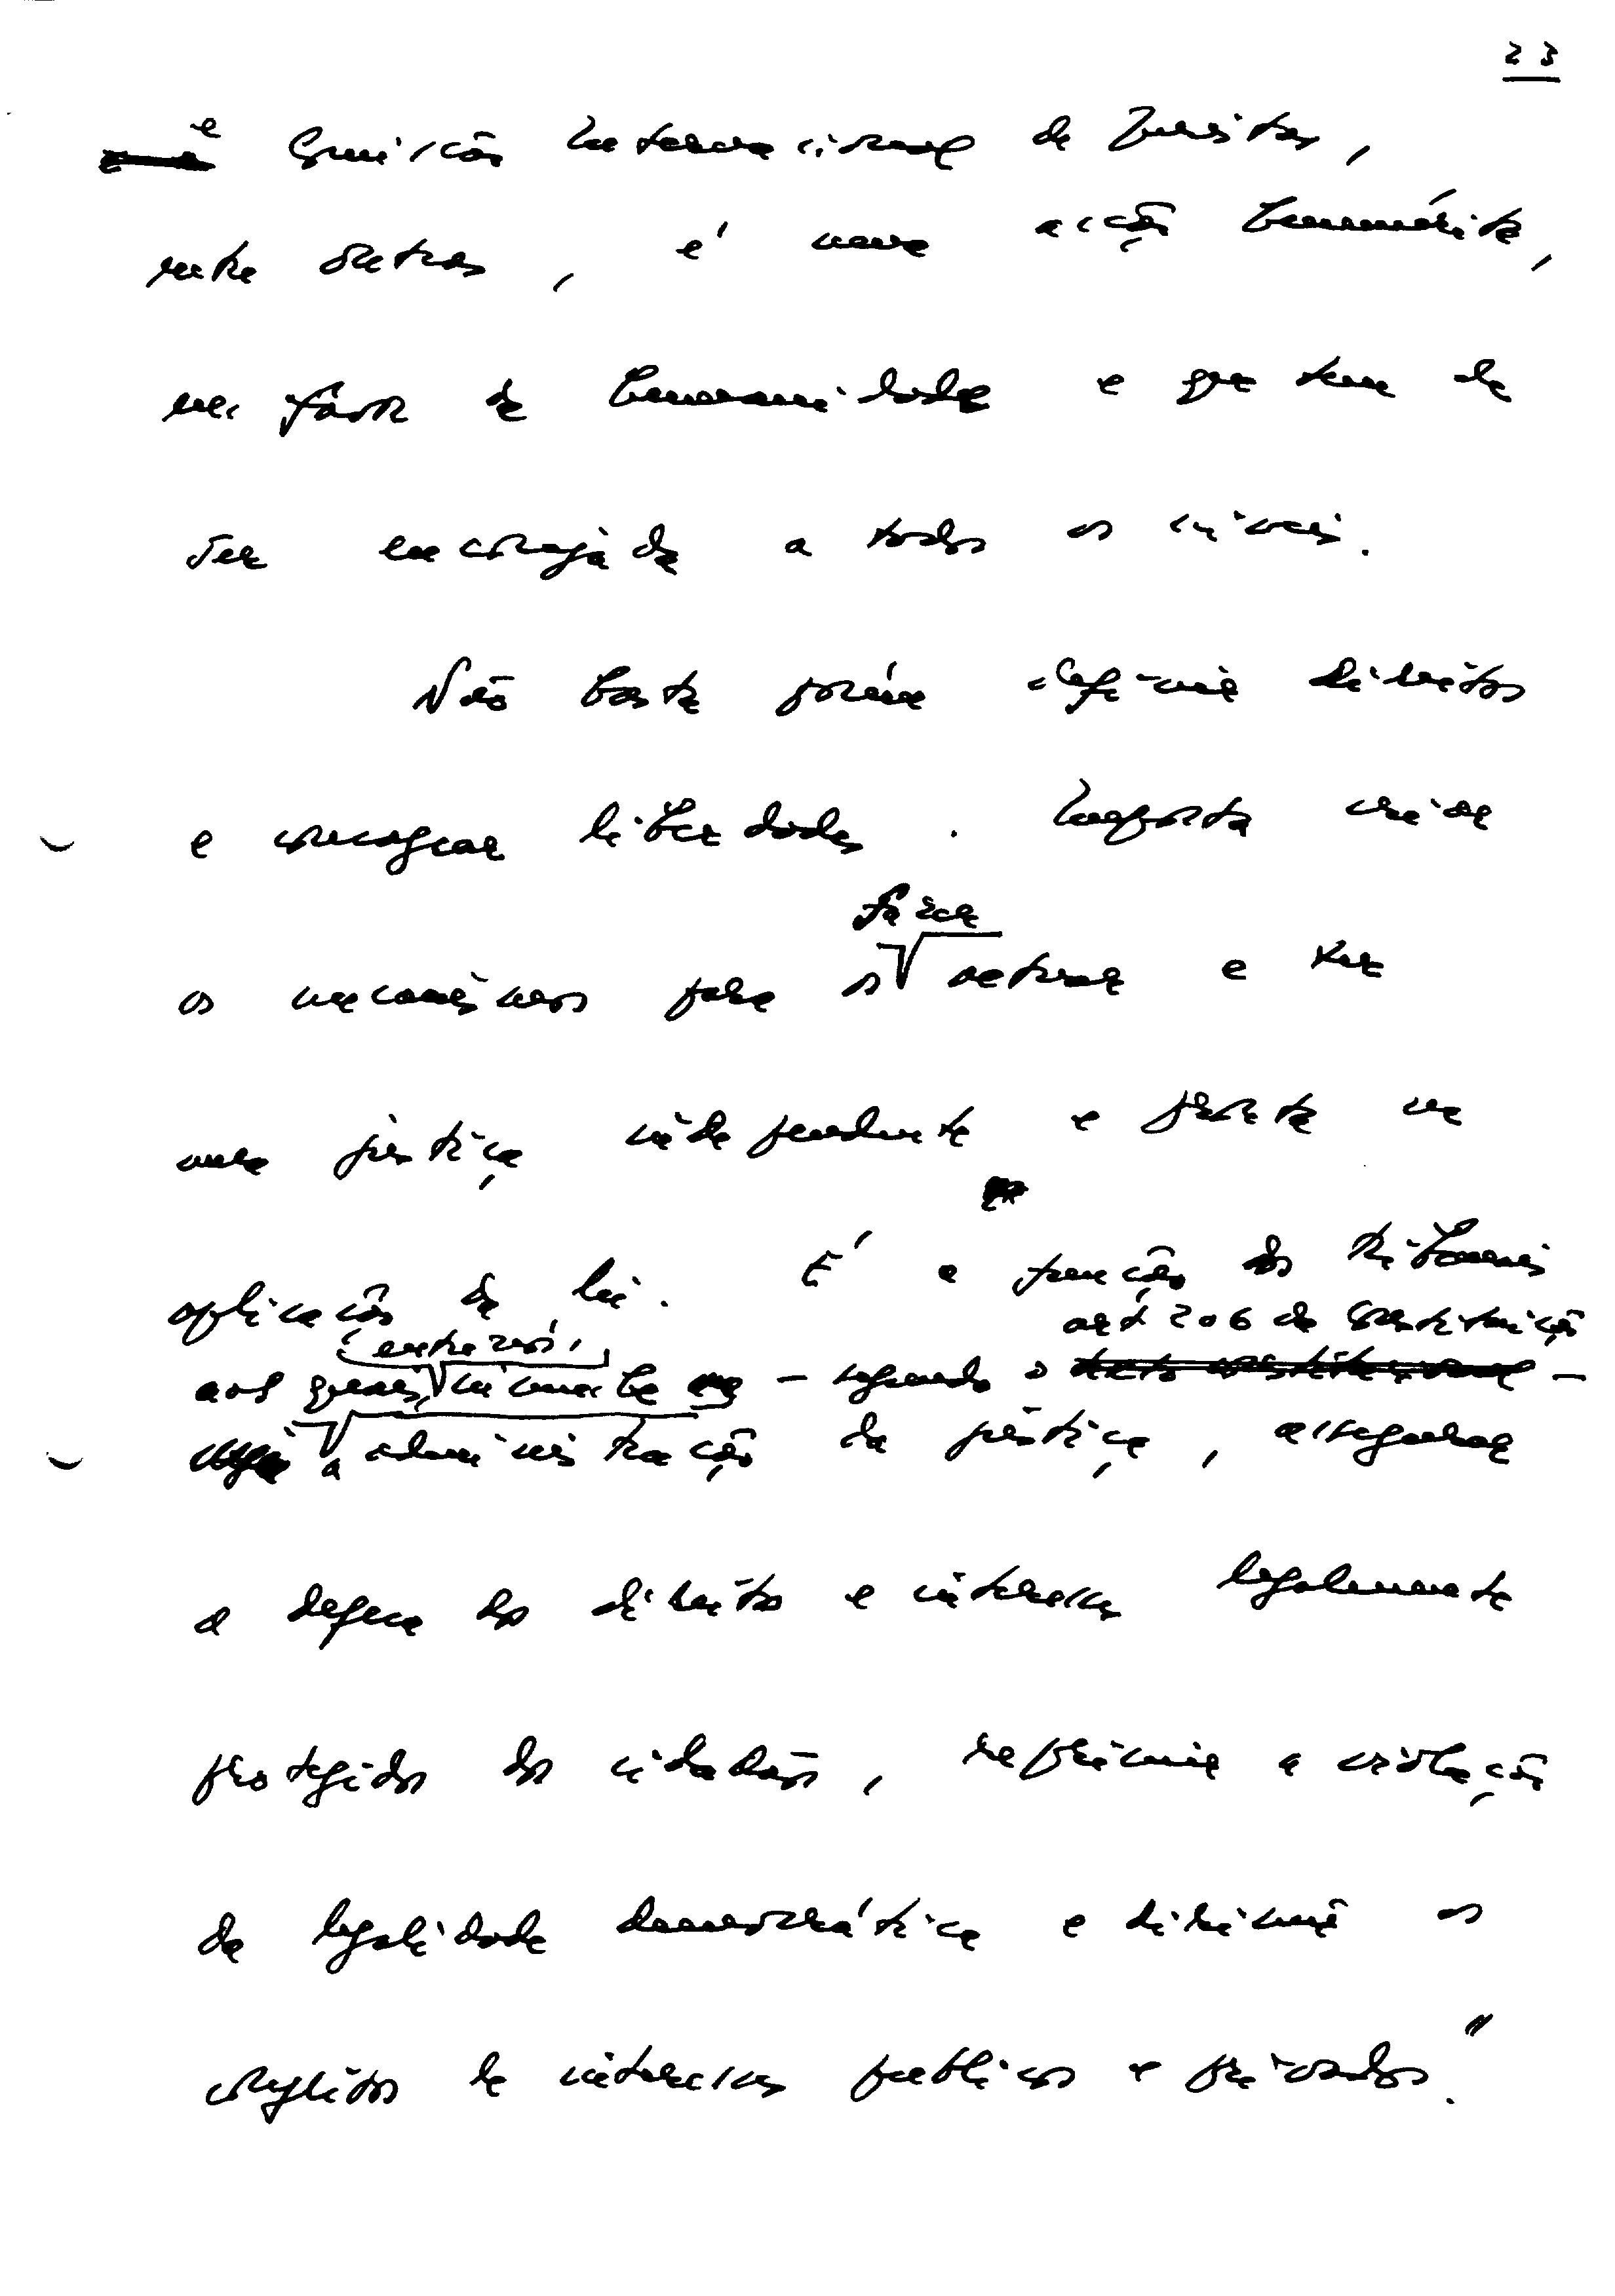 23
e Comissão Internacional de Juristas,
entre outras, é uma acção benemérita,
em favor da humanidade e que tem de
ser encorajada a todos os níveis.
Não basta porém definir direitos
e consagrar liberdades. Importa criar
os mecanismos para os
fazer
actuar e ter
uma justiça independente e pronta na
aplicação da lei. É a função dos tribunais
art 206 da Constituição
aos quais,
incumbe - segundo o texto constitucional -
a administração da justiça, assegurar
a defesa dos direitos e interesses legalmente
protegidos dos cidadãos, reprimir a violação
da legalidade democrática e dirimir os
conflitos de interesses publicos e privados."